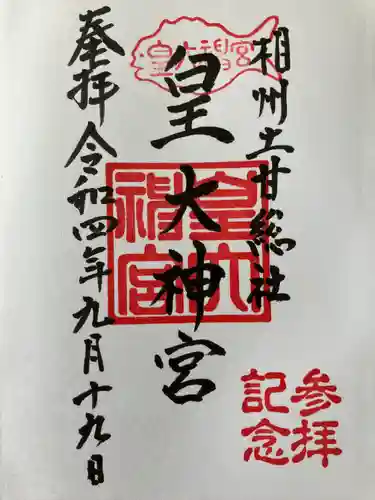 相州土甘総社
皇大神宮
皇大神宮
皇大神宮
奉拝
令和四年九月十九日
参拝
記念